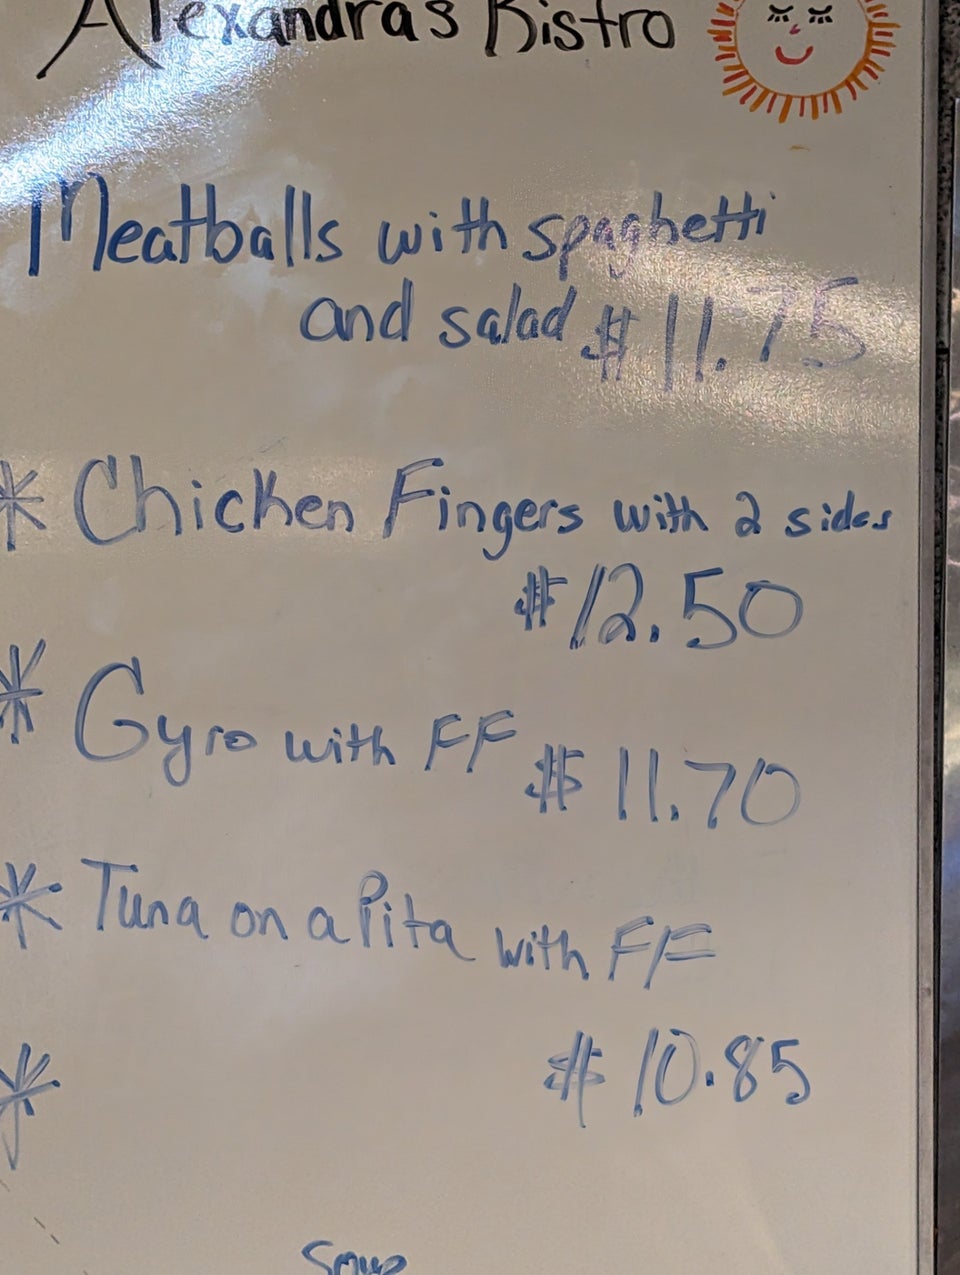 Alexandras Bistro
Meatballs with spaghetti
and salad $11.75
* Chicken Fingers with 2 sides
$12.50
* Gyro with FF $11.70
* Tuna on a Pita with FF
$10.85
*
Soup